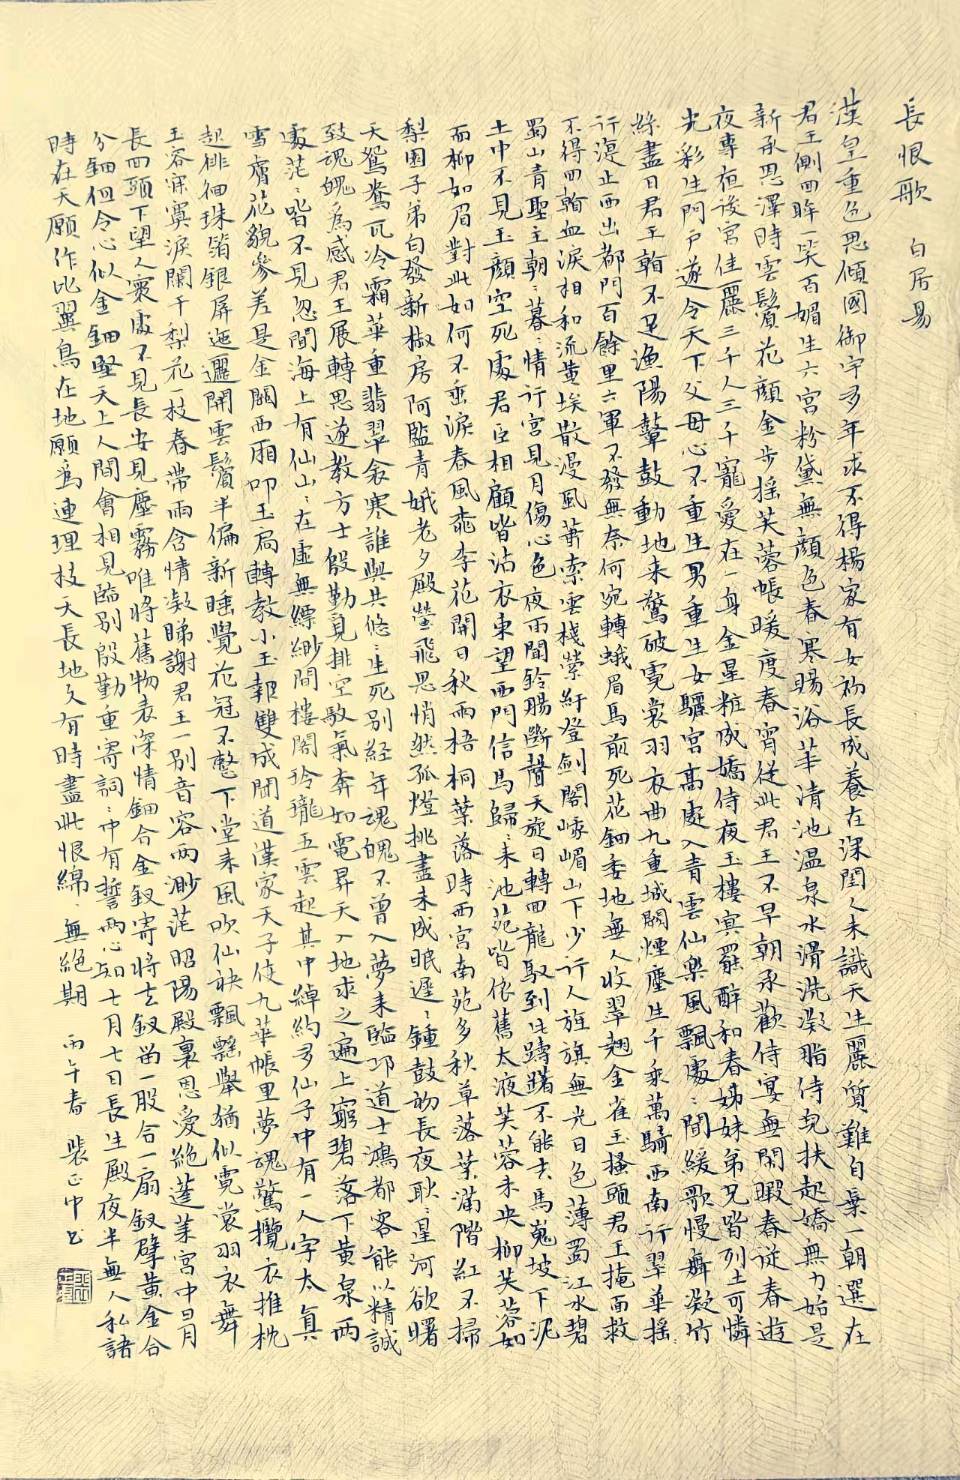 長恨歌　白居易
漢皇重色思傾國御宇多年求不得楊家有女初長成養在深閨人未識天生麗質難自棄一朝選在
君王側回眸一笑百媚生六宮粉黛無顏色春寒賜浴華清池溫泉水滑洗凝脂侍兒扶起嬌無力始是
新承恩澤時雲鬢花顏金步搖芙蓉帳暖度春宵從此君王不早朝承歡侍宴無閒暇春從春遊
夜專夜後宮佳麗三千人三千寵愛在一身金星粧成嬌侍夜玉樓宴罷醉和春姊妹弟兄皆列土可憐
光彩生門戶遂令天下父母心不重生男重生女驪宮高處入青雲仙樂風飄處〻聞緩歌慢舞凝竹
絲盡日君王看不足漁陽鼙鼓動地來驚破霓裳羽衣曲九重城闕煙塵生千乘萬騎西南行翠華搖
行復止西出都門百餘里六軍不發無奈何宛轉蛾眉馬前死花鈿委地無人收翠翹金雀玉搔頭君王掩面救
不得回看血淚相和流黃埃散漫風蕭索雲棧縈紆登劍閣峨嵋山下少行人旌旗無光日色薄蜀江水碧
蜀山青聖主朝〻暮〻情行宮見月傷心色夜雨聞鈴腸斷聲天旋日轉回龍馭到此躊躇不能去馬嵬坡下泥
土中不見玉顏空死處君臣相顧皆沾衣東望西門信馬歸〻來池苑皆依舊太液芙蓉未央柳芙蓉如
面柳如眉對此如何不垂淚春風桃李花開日秋雨梧桐葉落時西宮南苑多秋草落葉滿階紅不掃
梨園子弟白發新椒房阿監青娥老夕殿螢飛思悄然孤燈挑盡未成眠遲〻鍾鼓初長夜耿〻星河欲曙
天鴛鴦瓦冷霜華重翡翠衾寒誰與共悠〻生死別經年魂魄不曾入夢來臨邛道士鴻都客能以精誠
致魂魄為感君王展轉思遂教方士殷勤覓排空馭氣奔如電昇天入地求之遍上窮碧落下黃泉兩
處茫〻皆不見忽聞海上有仙山〻在虛無縹緲間樓閣玲瓏五雲起其中綽約多仙子中有一人字太真
雪膚花貌參差是金闕西廂叩玉扃轉教小玉報雙成聞道漢家天子使九華帳里夢魂驚攬衣推枕
起徘徊珠箔銀屏迤邐開雲鬢半偏新睡覺花冠不整下堂來風吹仙袂飄飄舉猶似霓裳羽衣舞
玉容寂寞淚闌干梨花枝春帶雨含情凝睇謝君王一別音容兩渺茫昭陽殿裏恩愛絕蓬萊宮中日月
長回頭下望人寰處不見長安見塵霧唯將舊物表深情鈿合金釵寄將去釵留一股合一扇釵擘黃金合
分鈿但令心似金鈿堅天上人間會相見臨別殷勤重寄詞〻中有誓兩心知七月七日長生殿夜半無人私語
時在天願作比翼鳥在地願為連理枝天長地久有時盡此恨綿〻無絕期　丙午春　裴正中書